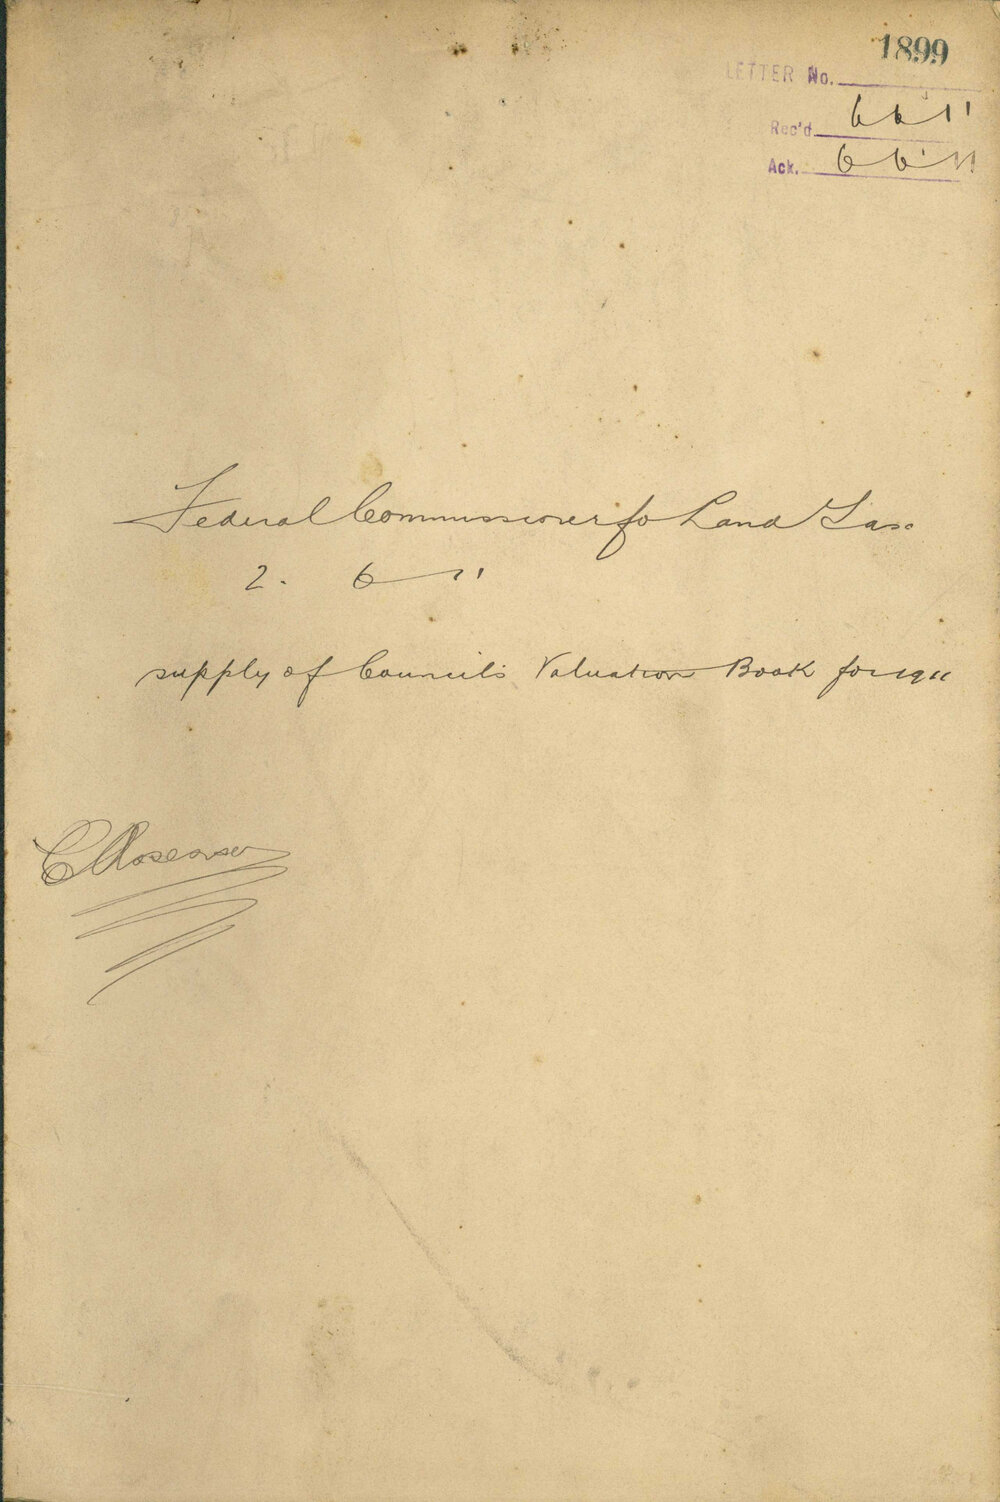 1899
LETTER No.
Rec'd 6 6 11
Ack. 6 6 11
Federal Commissioner fo Land Tax
2. 6 11
supply of Council's Valuation Book for 1911